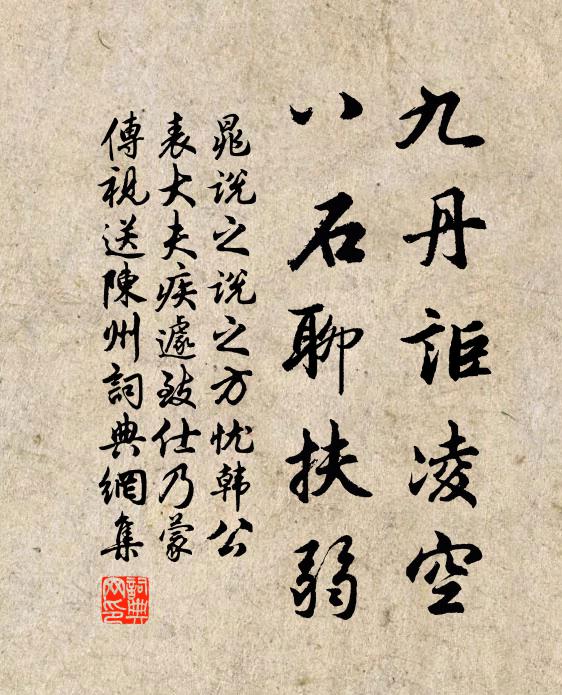 九丹詎凌空
八石聊扶弱
晁說之說之方忧韓公
表大夫疾遽致仕乃蒙
傳視送陳州詞典網集
詞典网印